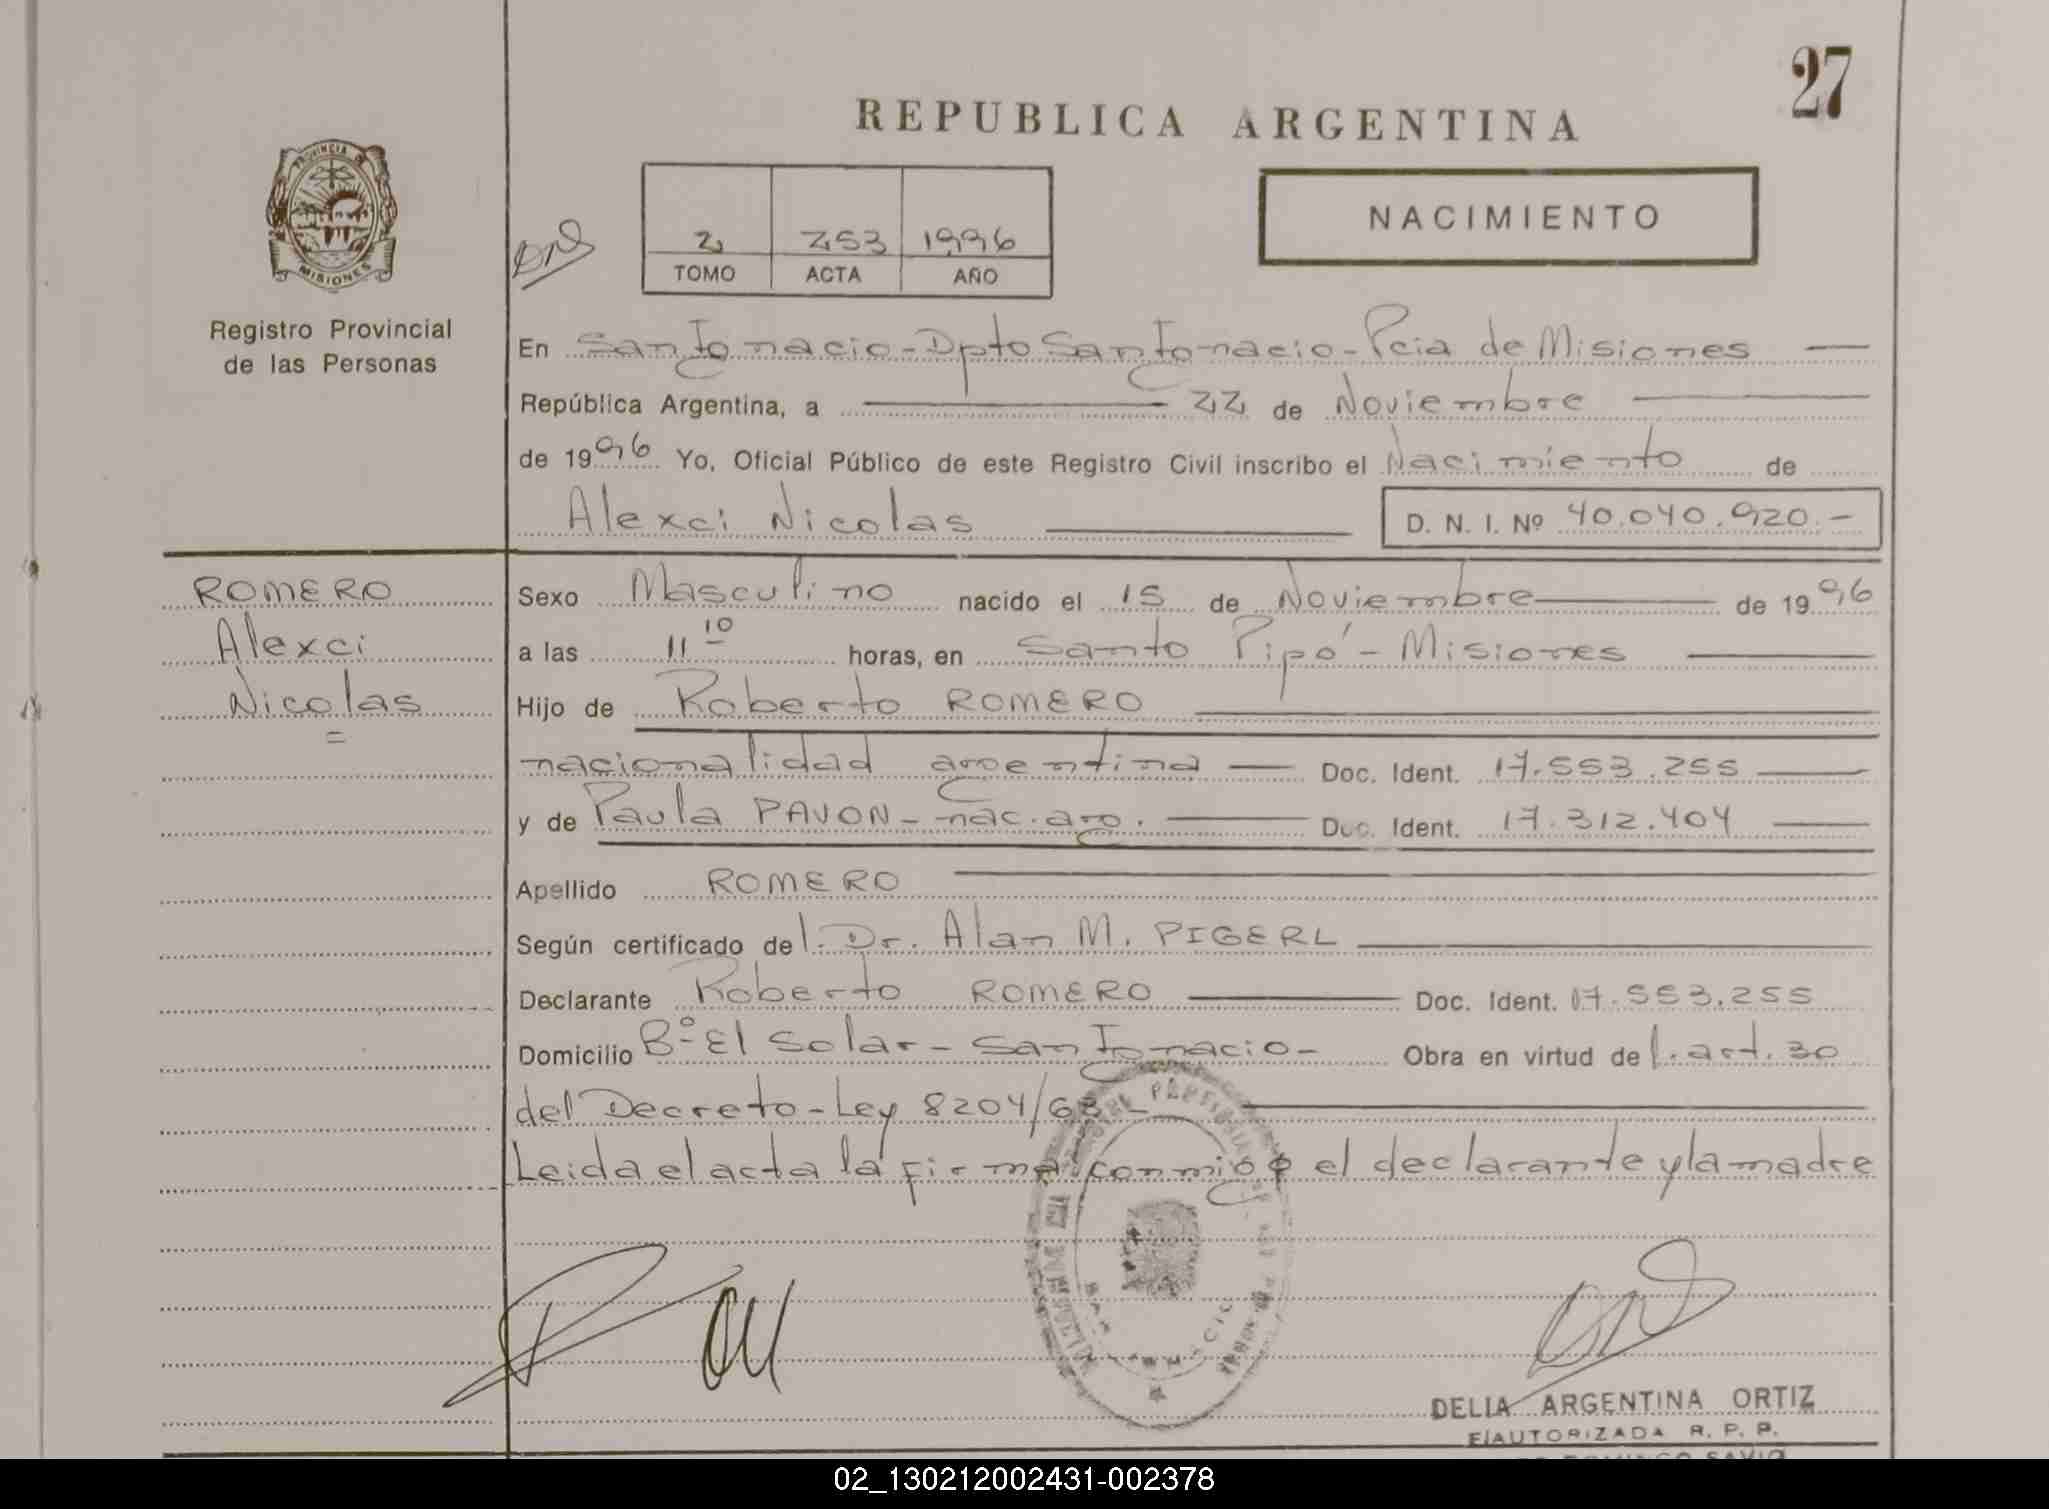 27
REPUBLICA ARGENTINA
PROVINCIA DE
MISIONES
Registro Provincial
de las Personas
2 253 1996
TOMO ACTA AÑO
NACIMIENTO
En San Ignacio - Dpto San Ignacio - Pcia de Misiones —
República Argentina, a — 22 de Noviembre —
de 1996 Yo, Oficial Público de este Registro Civil inscribo el Nacimiento de
Alexci Nicolas — D. N. I. Nº 40.040.920.-
ROMERO
Alexci
Nicolas
=
Sexo Masculino nacido el 15 de Noviembre — de 1996
a las 11 10 horas, en Santo Pipó - Misiones —
Hijo de Roberto ROMERO —
nacionalidad argentina — Doc. Ident. 17.553.255 —
y de Paula PAVON - nac. arg. — Doc. Ident. 17.312.404 —
Apellido ROMERO —
Según certificado del. Dr. Alan M. PIGERL —
Declarante Roberto ROMERO — Doc. Ident. 17.553.255
Domicilio Bº El Solar - San Ignacio - Obra en virtud del. art. 30
del Decreto-Ley 8204/63 - —
Leida el acta la firma conmigo el declarante y la madre
DELIA ARGENTINA ORTIZ
F/AUTORIZADA R. P. P.
02_130212002431-002378